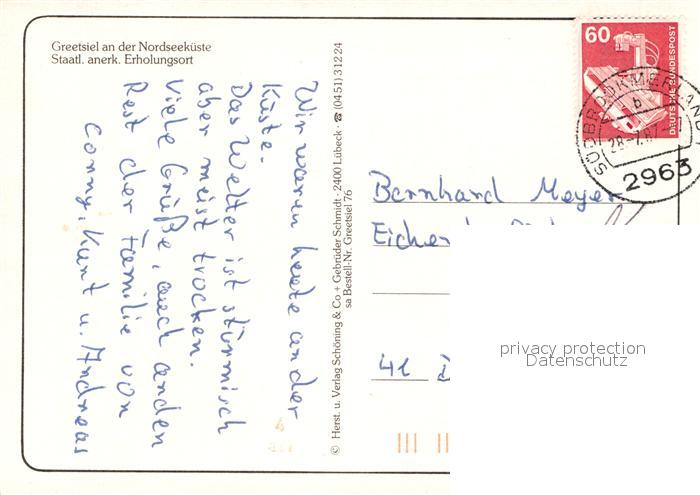 Greetsiel an der Nordseeküste
Staatl. anerk. Erholungsort
Wir waren heute an der
Küste.
Das Wetter ist stürmisch
aber meist trocken.
Viele Grüße, auch an den
Rest der Familie von
Conny, Kurt u. Andreas
© Herst. u. Verlag Schöning & Co + Gebrüder Schmidt · 2400 Lübeck · ☎ (0451) 31224
sa Bestell-Nr. Greetsiel 76
60
DEUTSCHE BUNDESPOST
SÜDBROOKMERLAND
b
28.-7.87
2963
Bernhard Meyer
41
privacy protection
Datenschutz